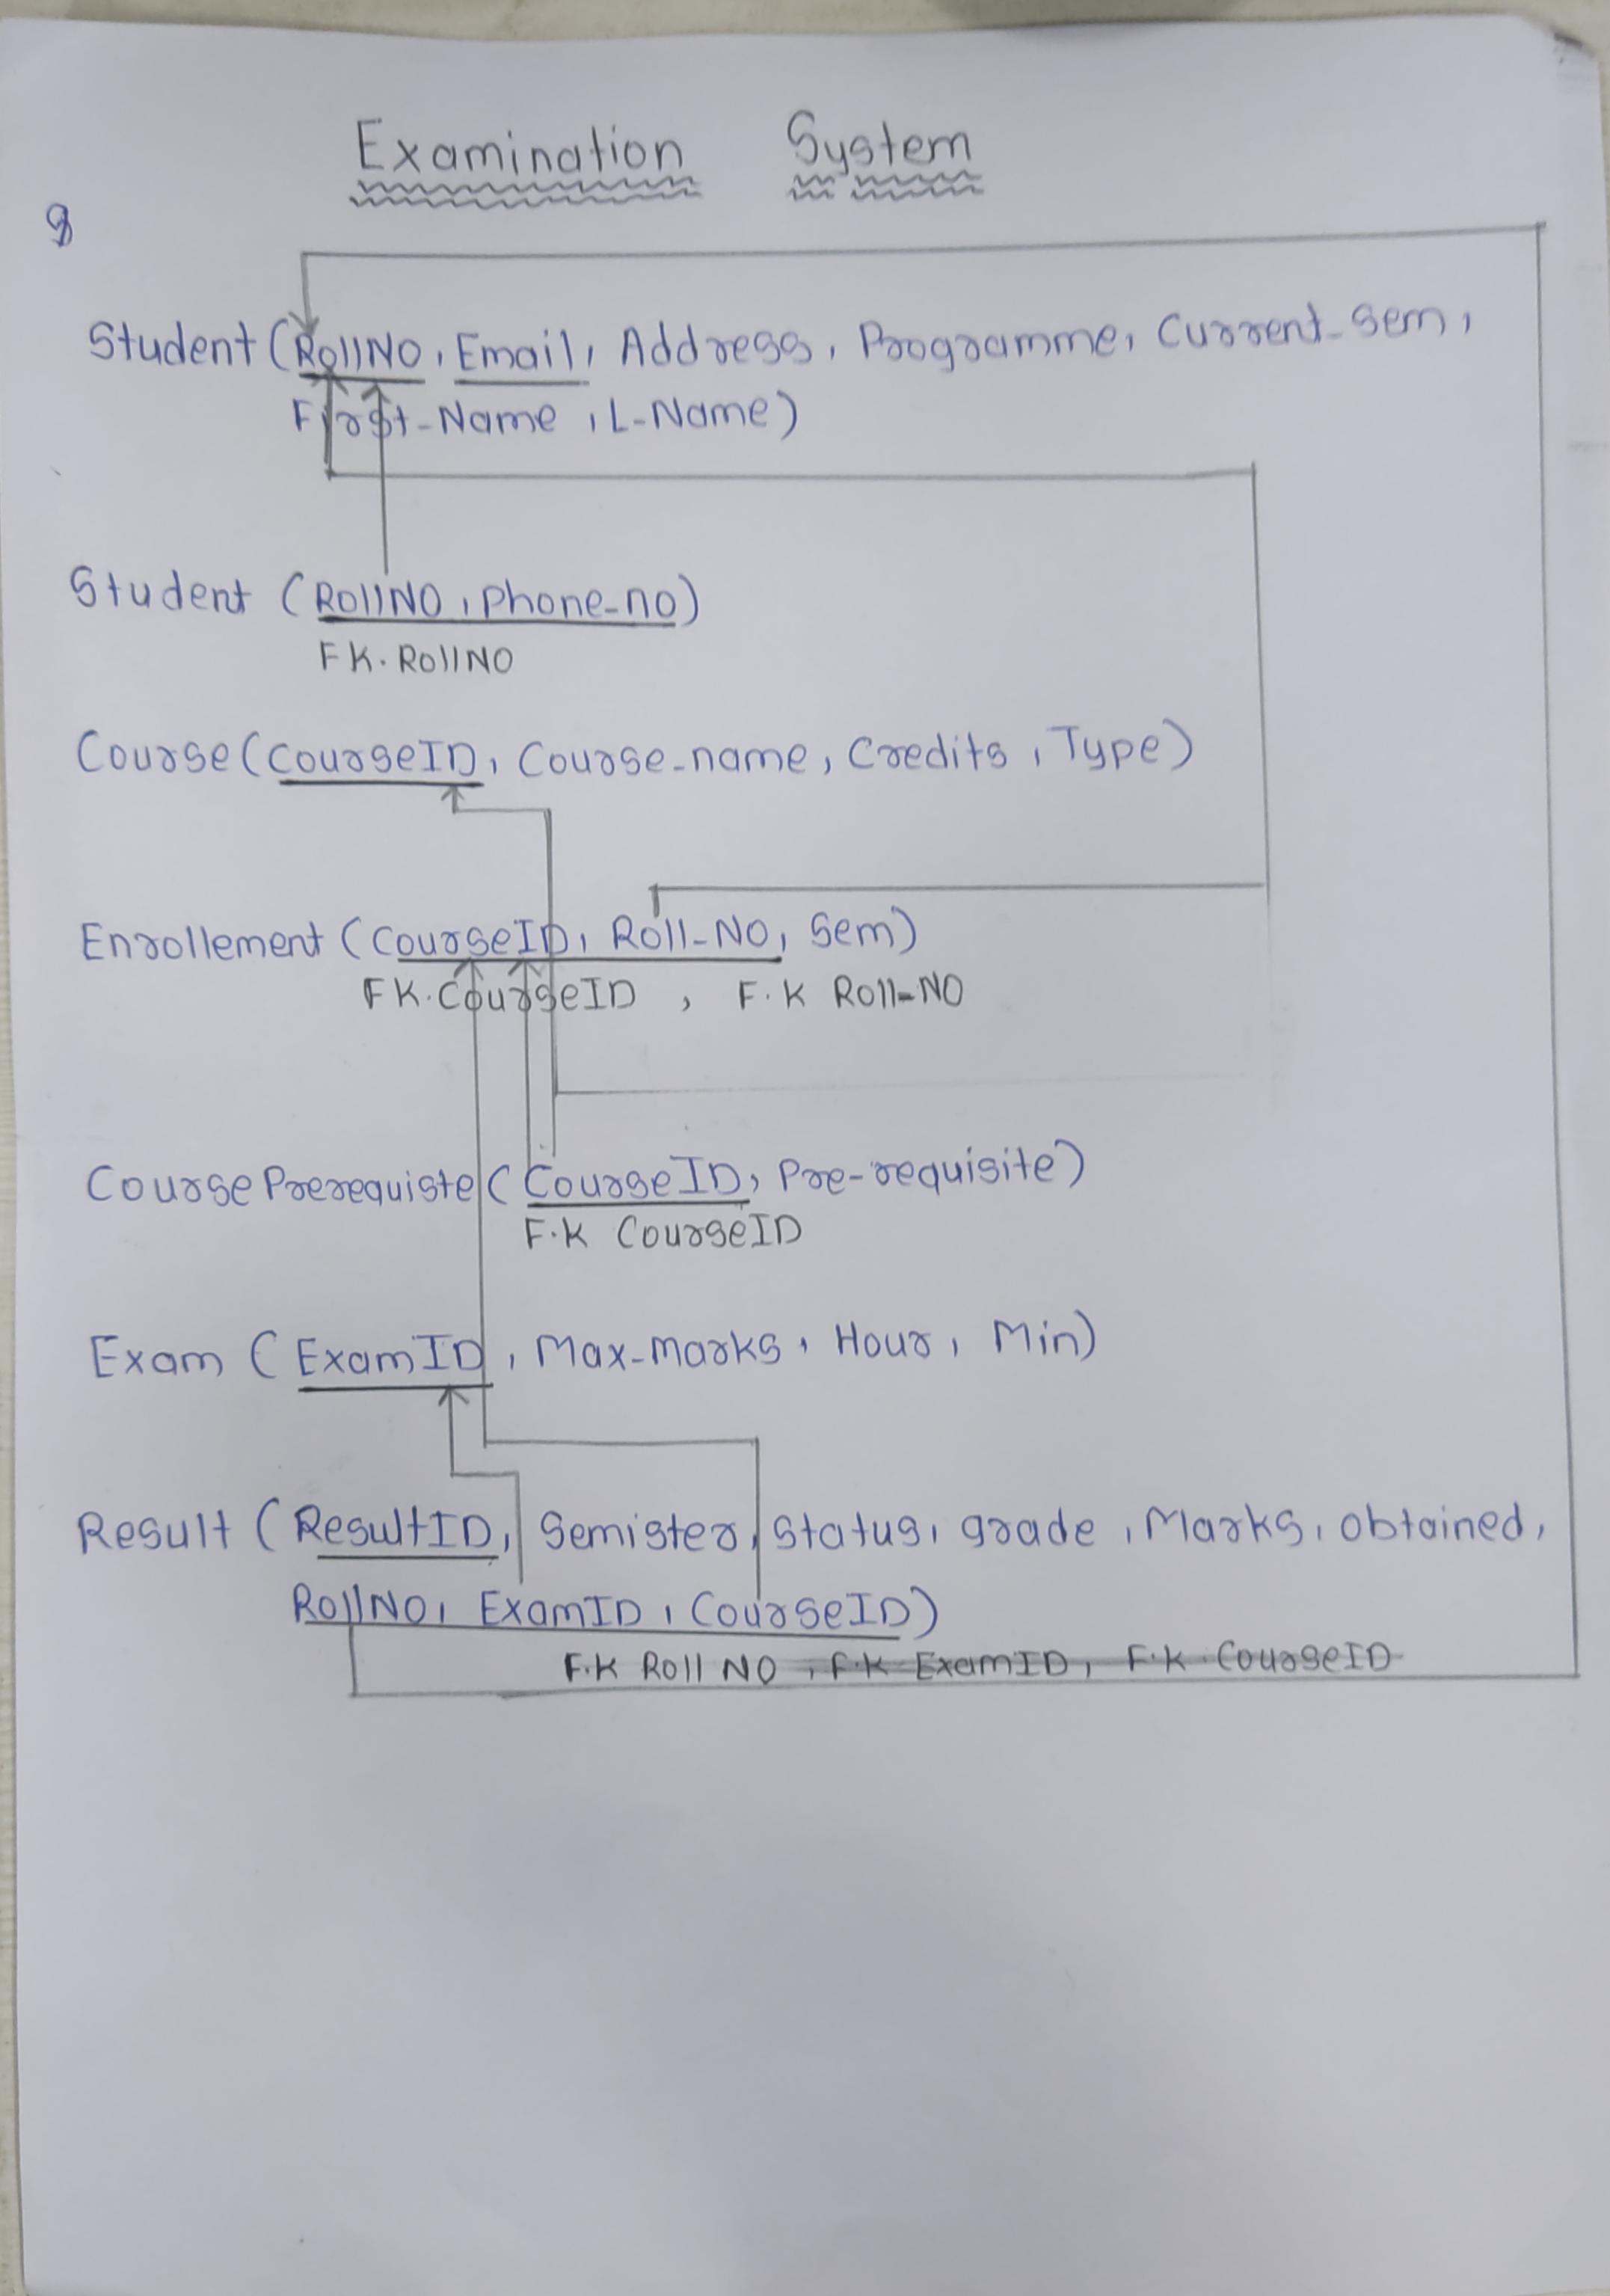 Examination System
Student (RollNO, Email, Address, Programme, Current-Sem,
First-Name, L-Name)
Student (RollNO, Phone-no)
FK. RollNO
Course (CourseID, Course-name, Credits, Type)
Enrollement (CourseID, Roll-NO, Sem)
FK. CourseID, F.K Roll-NO
Course Prerequiste (CourseID, Pre-requisite)
F.K CourseID
Exam (ExamID, Max-Marks, Hour, Min)
Result (ResultID, Semister, Status, grade, Marks, obtained,
RollNO, ExamID, CourseID)
F.K Roll NO, F.K ExamID, F.K. CourseID